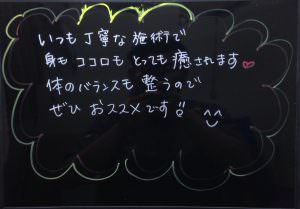 いつも丁寧な施術で
身もココロもとっても癒されます♥
体のバランスも整うので
ぜひおススメです!!